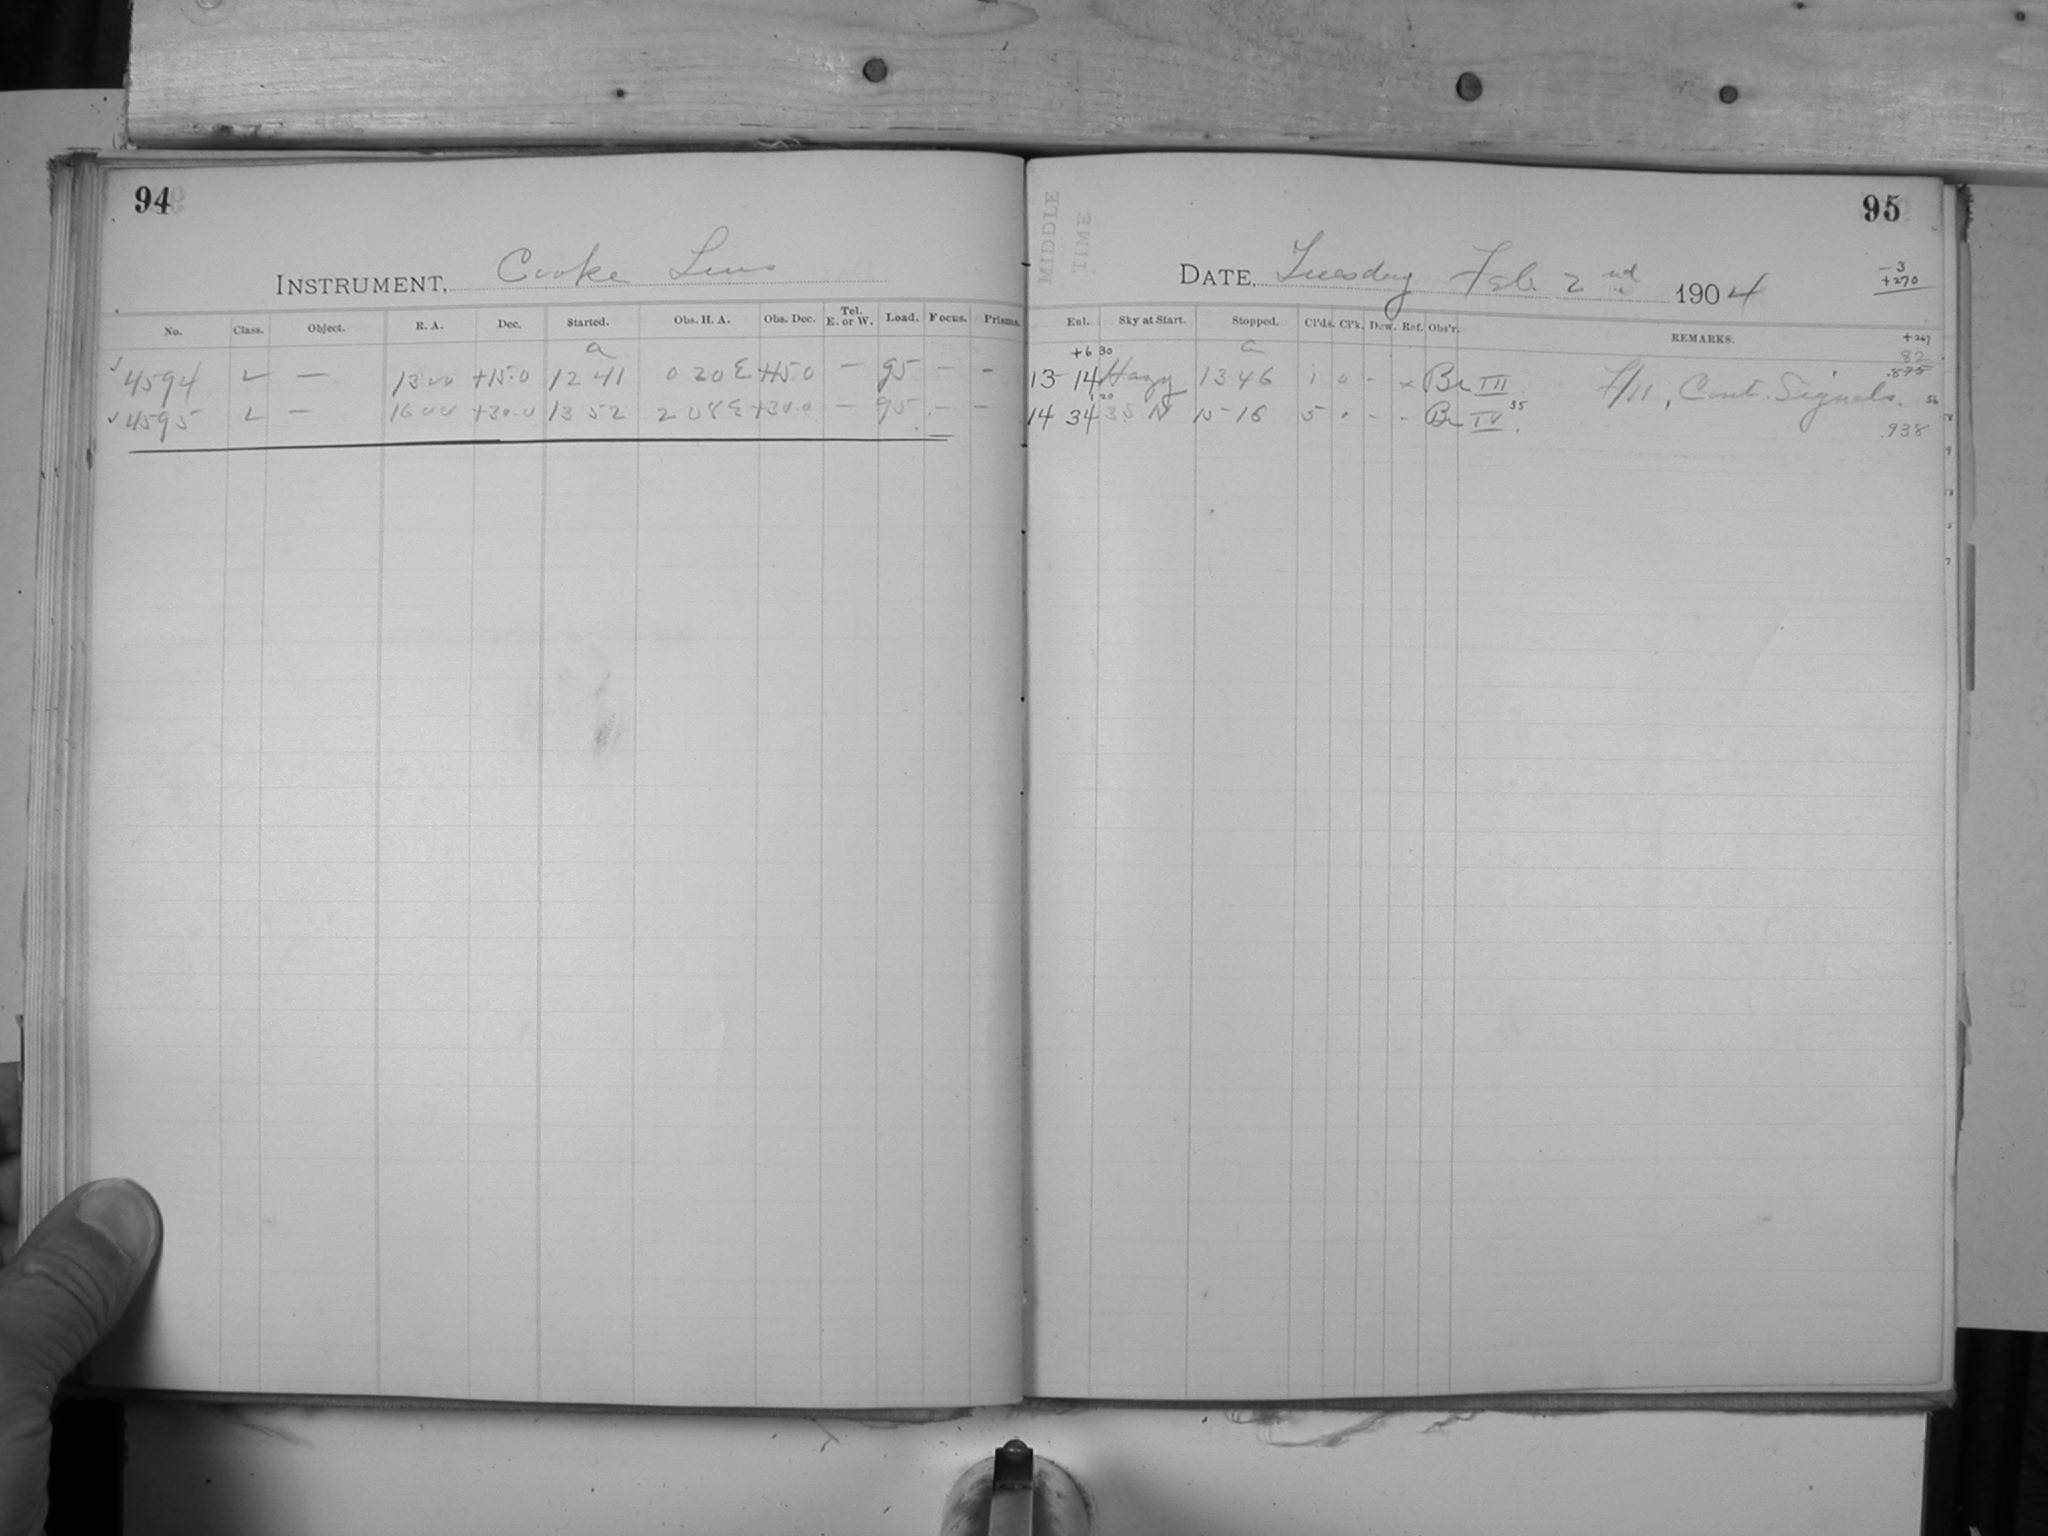 94
INSTRUMENT, Cooke Lens
No. Class. Object. R. A. Dec. Started. Obs. H. A. Obs. Dec. Tel. E. or W. Load. Focus. Prisms.
a
✓ 4594 L — 13 00 +15.0 12 41 0 20 E +15.0 — 95 — —
✓ 4595 L — 16 00 +30.0 13 52 2 08 E +30.0 — 95 — —
95
MIDDLE TIME
DATE, Tuesday Feb. 2nd 1904
-3
+270
+267
Ent. Sky at Start. Stopped. Cl'ds. Cl'k. Dew. Ref. Obs'r. REMARKS.
+6 30 a 82
13 14 Hazy 13 46 1 0 - x Br III F/11, Cont. Signals. .875
20 56
14 34 3S N 15 16 5 0 - - Br IV 35 .938